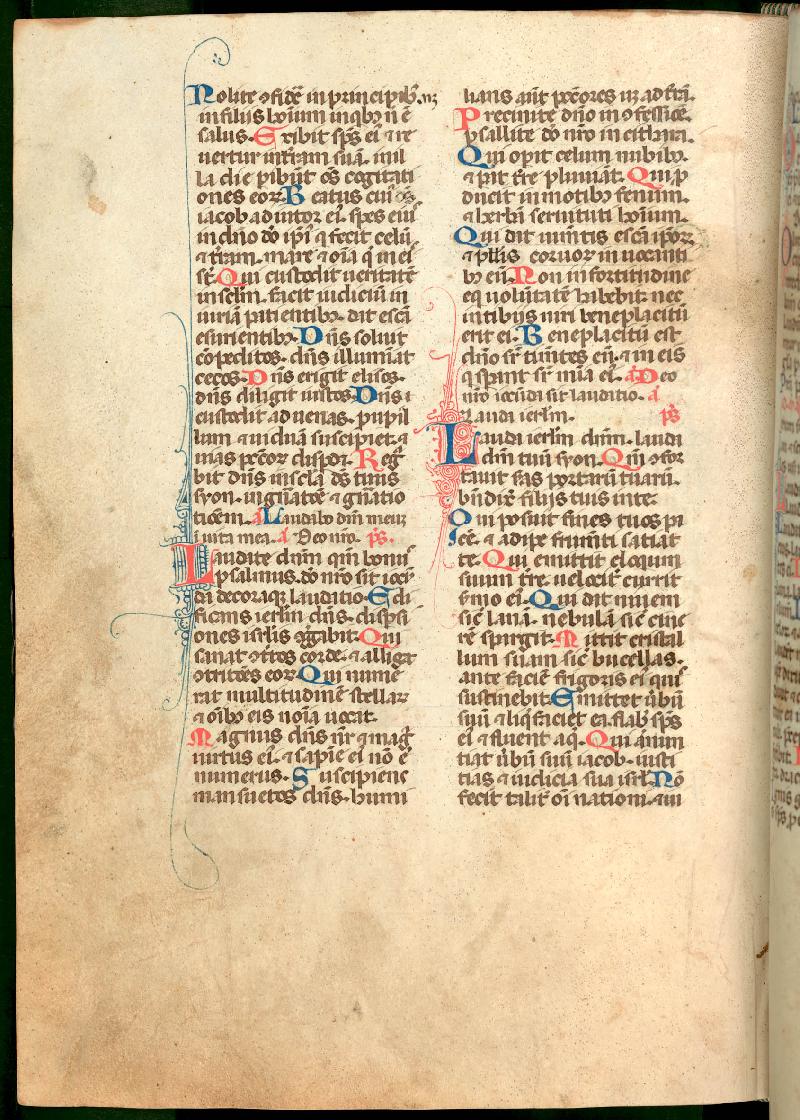 Nolite ꝯfidē in principibꝫ. in
in filiis hoīum in qͥbꝫ nō ē
salus. Exibit sp̄s eī ⁊ re
uertur in t̄ram suā. in il
la die ꝑibūt oēs cogitati
ones eoꝝ Beatus cuiꝰ ds̄
iacob adiutor eiꝰ. spes eiꝰ
in dn̄o dō ip̄iꝰ q̄ fecit celū
⁊ t̄ram. mare ⁊ oīa q̄ in eis
st̄. Qui custodit ueritatē
in sclm̄. facit iudiciū in
iuriā patientibꝫ. dat escā
esurientibꝫ. Dn̄s soluit
cōpeditos. dn̄s illumīat
cecos. Dn̄s erigit elisos.
dn̄s diligit iustos. Dn̄s
custodit aduenas. pupil
lum ⁊ uiduā suscipiet. ⁊
uias pcc̄oꝝ dispꝺ. Reḡ
bit dn̄s in scl̄a dś tuus
syon. in gn̄atōē ⁊ gn̄atio
nem. a Laudabo dm̄ meū
in uita mea. a Deo nr̄o. ps̄.
Laudate dnm̄ qm̄ bonus
psalmus. dō nr̄o sit iocū
da decoraqꝫ laudatio. Edi
ficans ierlm̄ dn̄s. dispsi
ones isrl̄is ꝯḡgabit. Qui
sanat ꝯt̄tos corde. ⁊ alligat
ꝯtritōēs eoꝝ. Qui nume
rat multitudinē stellaꝝ
⁊ oībꝫ eis noīa uocat.
Magnus dn̄s nr̄ ⁊ maḡ
uirtus eiꝰ. ⁊ sapiē eiꝰ nō ē
numerus. Suscipiens
mansuetos dn̄s. humi
lians aūt pcc̄ores usqꝫ ad t̄rā.
Precinite dn̄o in ꝯfessiōe.
psallite dō nr̄o in cithara.
Qui opit celum nubibꝫ.
⁊ pat t̄re pluuiā. Qui ꝓ
ducit in motibꝫ fenum.
⁊ herbā seruituti hoīum.
Qui dat iumtis escā ipoꝝ
⁊ pullis coruoꝝ inuocāti
bꝫ eū. Non in fortitudine
equi uolūtatē habebit. nec
in tibijs uiri beneplacitū
erit ei. Beneplacitū est
dn̄o sr̄ timētes eū. ⁊ in eis
q̄ spant sr̄ mīa eiꝰ. a Deo
nr̄o iocūda sit laudatio. a
Lauda ierlm̄. ps̄
Lauda ierlm̄ dnm̄. lauda
dm̄ tuū syon. Qm̄ ꝯfor
tauit sās portarū tuarū.
bn̄dix̄ filijs tuis in te.
Qui posuit fines tuos pa
cē. ⁊ adipe frumti satiat
te. Qui emittit eloquium
suum t̄re. uelocit̄ currit
sermo eiꝰ. Qui dat niuem
sic̄ lanā. nebulā sic̄ cine
rē spargit. Mittit cristal
lum suam sic̄ bucellas.
ante faciē frigoris eiꝰ quis
sustinebit. Emittet ūbū
suū ⁊ liq̄faciet ea. flab̄ sp̄s
eiꝰ ⁊ fluent aq̄. Qui ānun
tiat ūbū suū iacob. iusti
tias ⁊ iudicia sua isrl̄. Nō
fecit talit̄ oī nationi. ⁊ iu